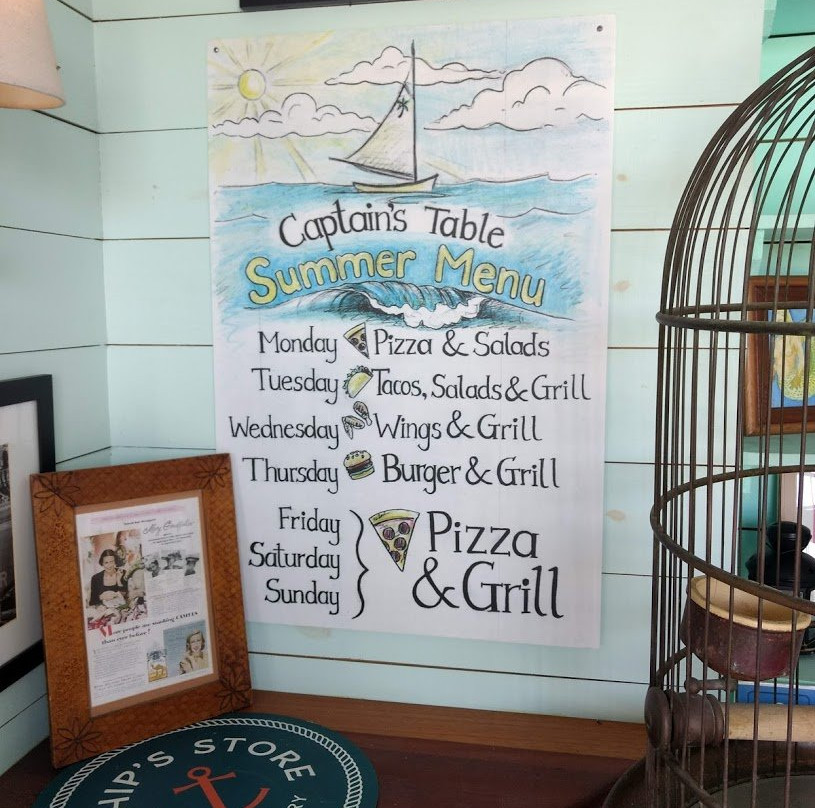 Captain's Table
Summer Menu
Monday Pizza & Salads
Tuesday Tacos, Salads & Grill
Wednesday Wings & Grill
Thursday Burger & Grill
Friday
Saturday
Sunday
Pizza
& Grill
more people are smoking CAMELS
than ever before!
HIP'S STORE